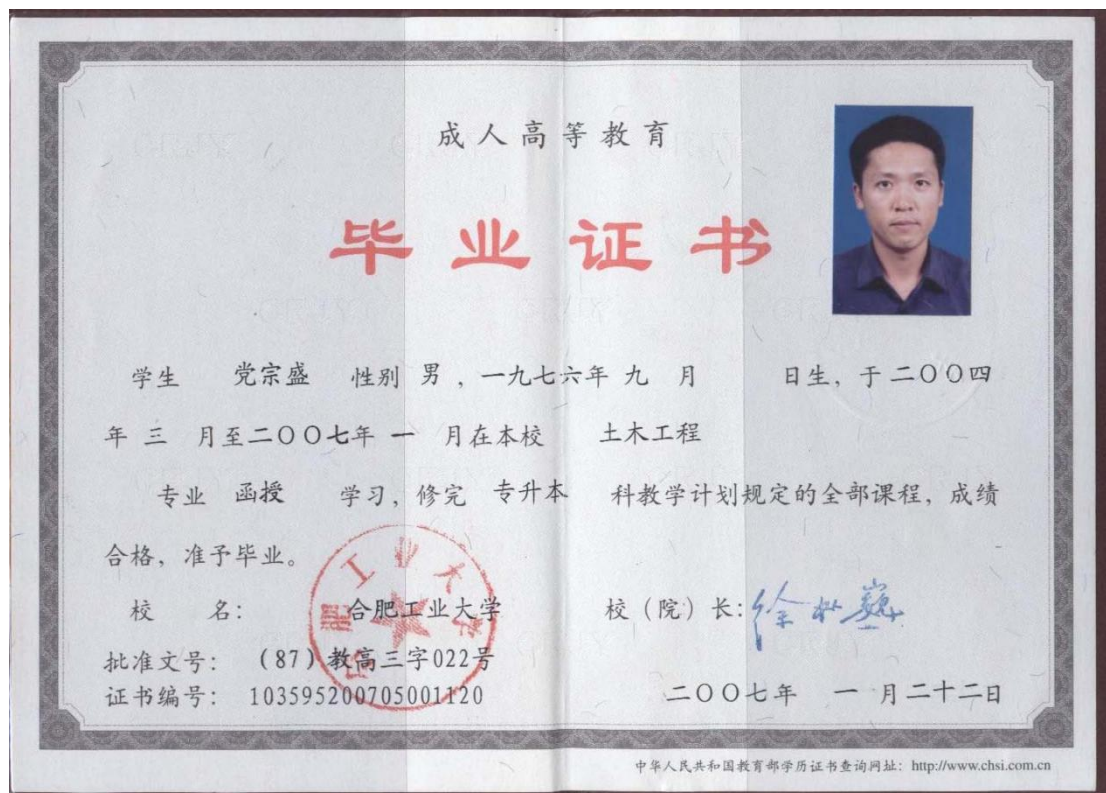 成人高等教育
毕业证书
学生 党宗盛 性别 男 , 一九七六年 九 月 日生, 于 二〇〇四
年 三 月至二〇〇七年 一 月在本校 土木工程
专业 函授 学习, 修完 专升本 科教学计划规定的全部课程, 成绩
合格, 准予毕业。
校 名: 合肥工业大学 校（院）长: 徐枞巍
批准文号: （87）教高三字022号
证书编号: 103595200705001120 二〇〇七年 一 月二十二日
合肥工业大学
中华人民共和国教育部学历证书查询网址: http://www.chsi.com.cn